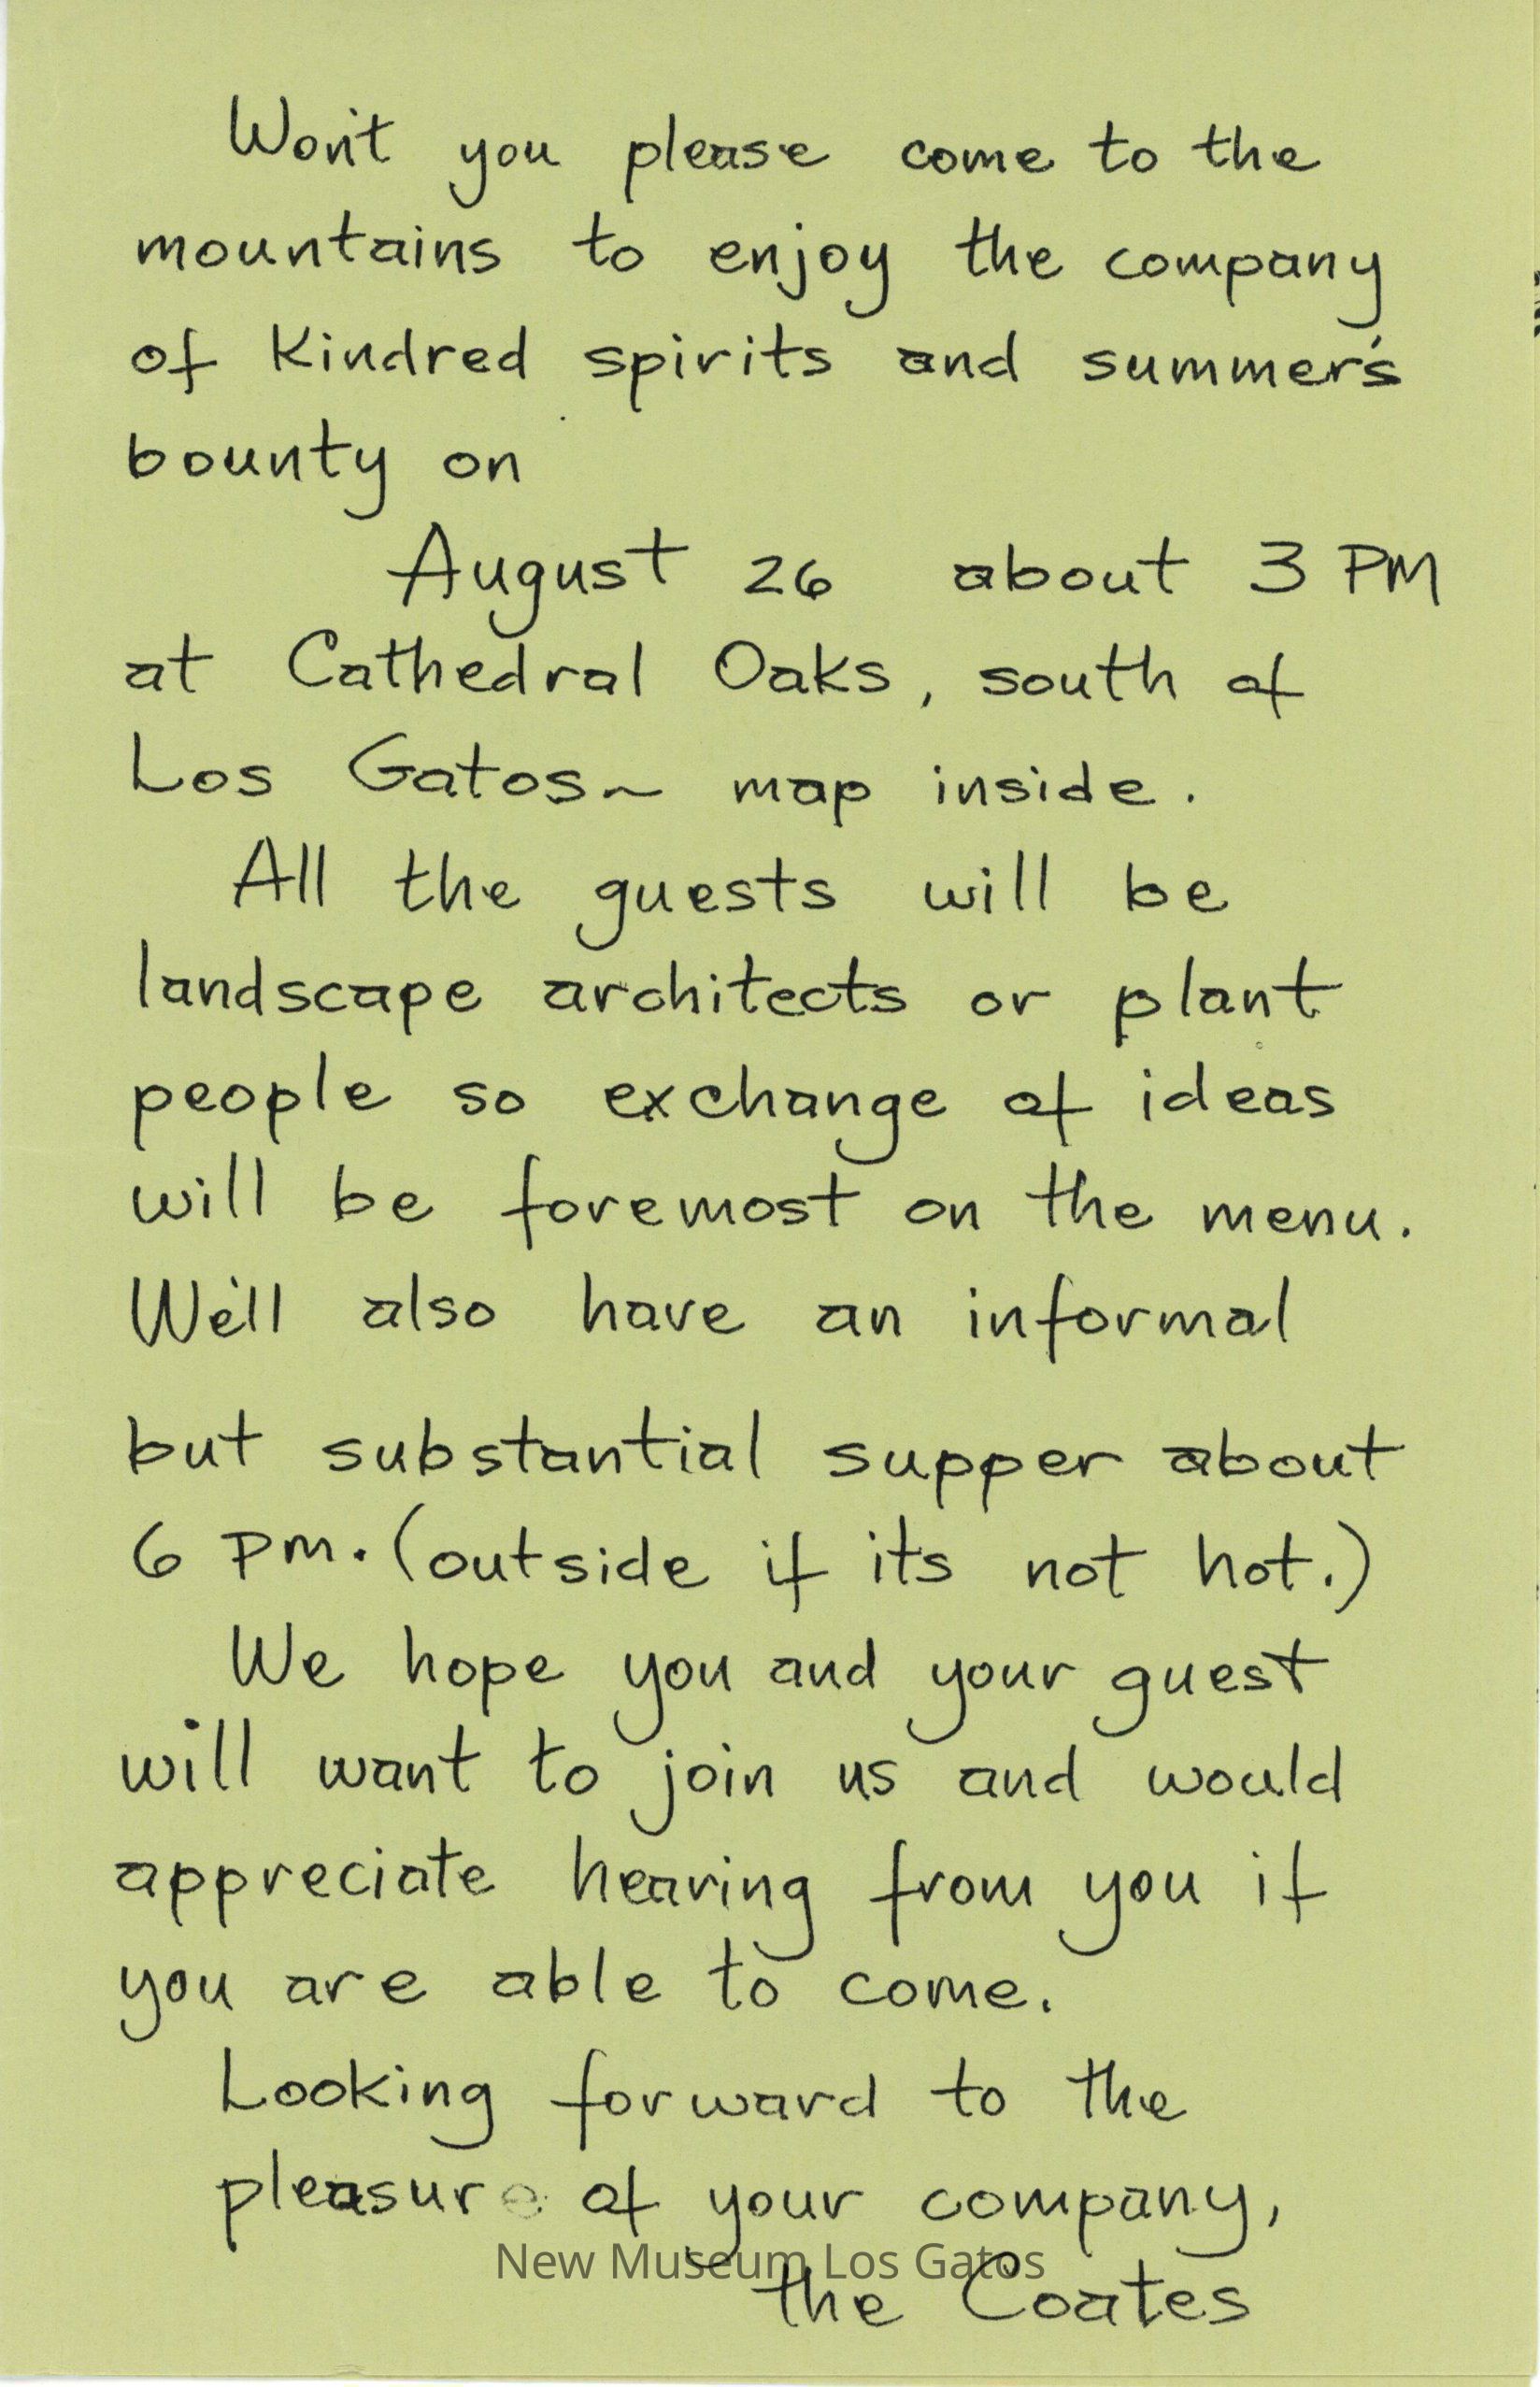 Won't you please come to the
mountains to enjoy the company
of Kindred spirits and summer's
bounty on
August 26 about 3 PM
at Cathedral Oaks, south of
Los Gatos~ map inside.
All the guests will be
landscape architects or plant
people so exchange of ideas
will be foremost on the menu.
We'll also have an informal
but substantial supper about
6 PM. (outside if it's not hot.)
We hope you and your guest
will want to join us and would
appreciate hearing from you if
you are able to come.
Looking forward to the
pleasure of your company,
New Museum Los Gatos
the Coates